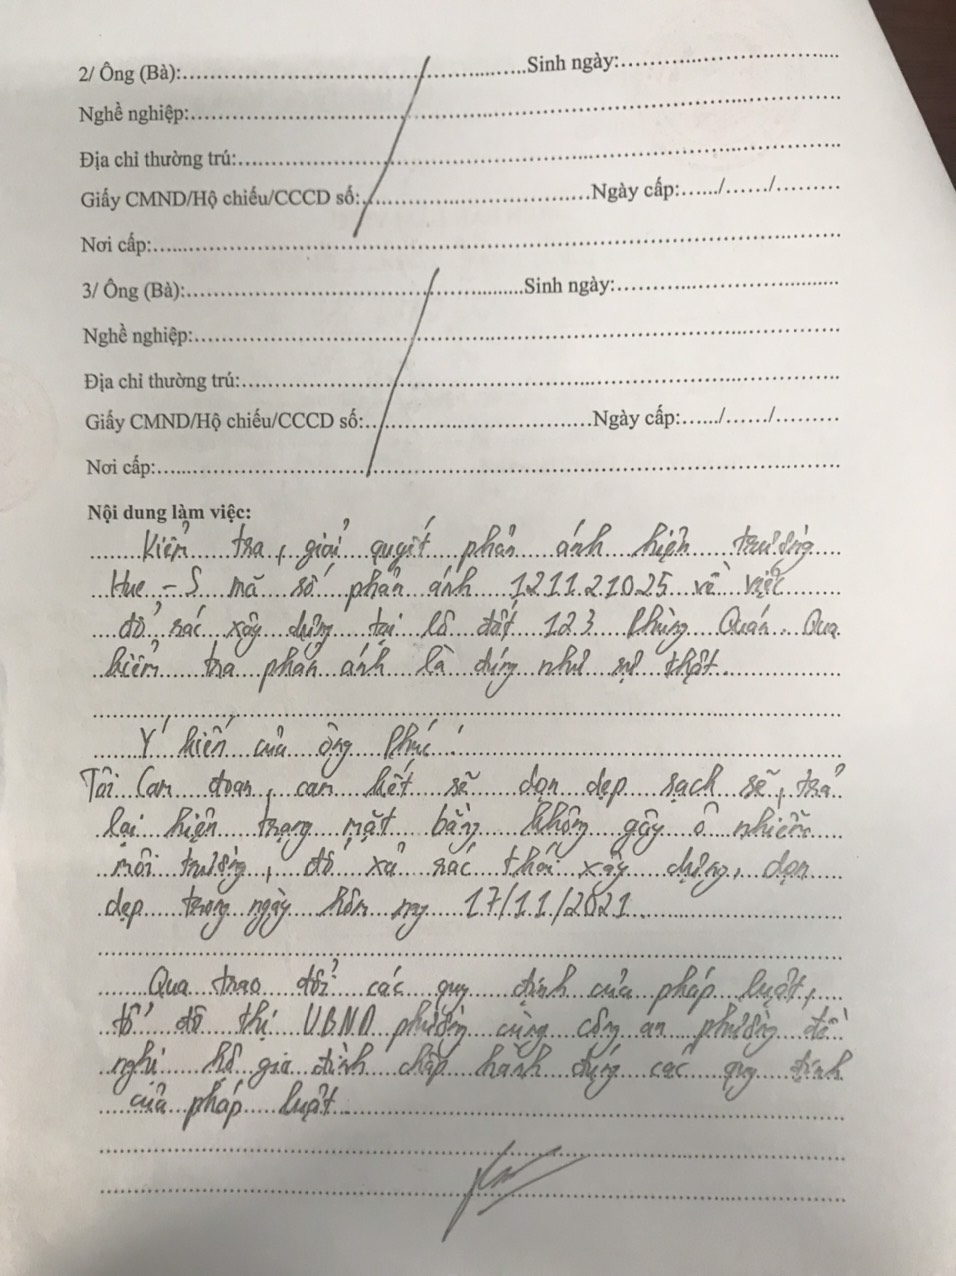 2/ Ông (Bà):........................Sinh ngày:..................
Nghề nghiệp:..................
Địa chỉ thường trú:..................
Giấy CMND/Hộ chiếu/CCCD số:..................Ngày cấp:....../....../.........
Nơi cấp:..................
3/ Ông (Bà):........................Sinh ngày:..................
Nghề nghiệp:..................
Địa chỉ thường trú:..................
Giấy CMND/Hộ chiếu/CCCD số:..................Ngày cấp:....../....../.........
Nơi cấp:..................
Nội dung làm việc:
Kiểm tra, giải quyết phản ánh hiện trường
Hue - S mã số phản ánh 1211.21025 về việc
đổ rác xây dựng tại lô đất 123 Phùng Quán. Qua
kiểm tra phản ánh là đúng như sự thật.
Ý kiến của ông Phúc:
Tôi Cam đoan, cam kết sẽ dọn dẹp sạch sẽ, trả
lại hiện trạng mặt bằng không gây ô nhiễm
môi trường, đổ xả rác thải xây dựng, dọn
dẹp trong ngày hôm nay 17/11/2021.
Qua trao đổi các quy định của pháp luật,
tổ đô thị UBND phường cùng công an phường đề
nghị hộ gia đình chấp hành đúng các quy định
của pháp luật.